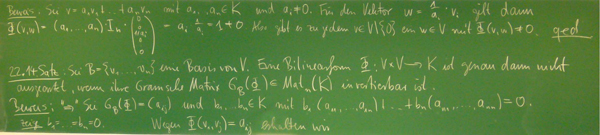 Beweis: Sei v = a₁v₁ + … + aₙvₙ mit a₁,…,aₙ ∈ K und aᵢ ≠ 0. Für den Vektor w = 1/aᵢ · vᵢ gilt dann
Φ(v,w) = (a₁,…,aₙ) Iₙ (0 ⋮ 1/aᵢ ⋮ 0) = aᵢ 1/aᵢ = 1 ≠ 0 Also gibt es zu jedem v∈V\{0} ein w∈V mit Φ(v,w) ≠ 0. qed
22.14 Satz. Sei B = {v₁,…,vₙ} eine Basis von V. Eine Bilinearform Φ: V×V → K ist genau dann nicht
ausgeartet, wenn ihre Gramsche Matrix G_B(Φ) ∈ Matₙ(K) invertierbar ist.
Beweis: "⇒" Sei G_B(Φ) = (aᵢⱼ) und b₁,…,bₙ ∈ K mit b₁(a₁₁,…,a₁ₙ) + … + bₙ(aₙ₁,…,aₙₙ) = 0.
zeige b₁ = … = bₙ = 0. Wegen Φ(vᵢ,vⱼ) = aᵢⱼ erhalten wir